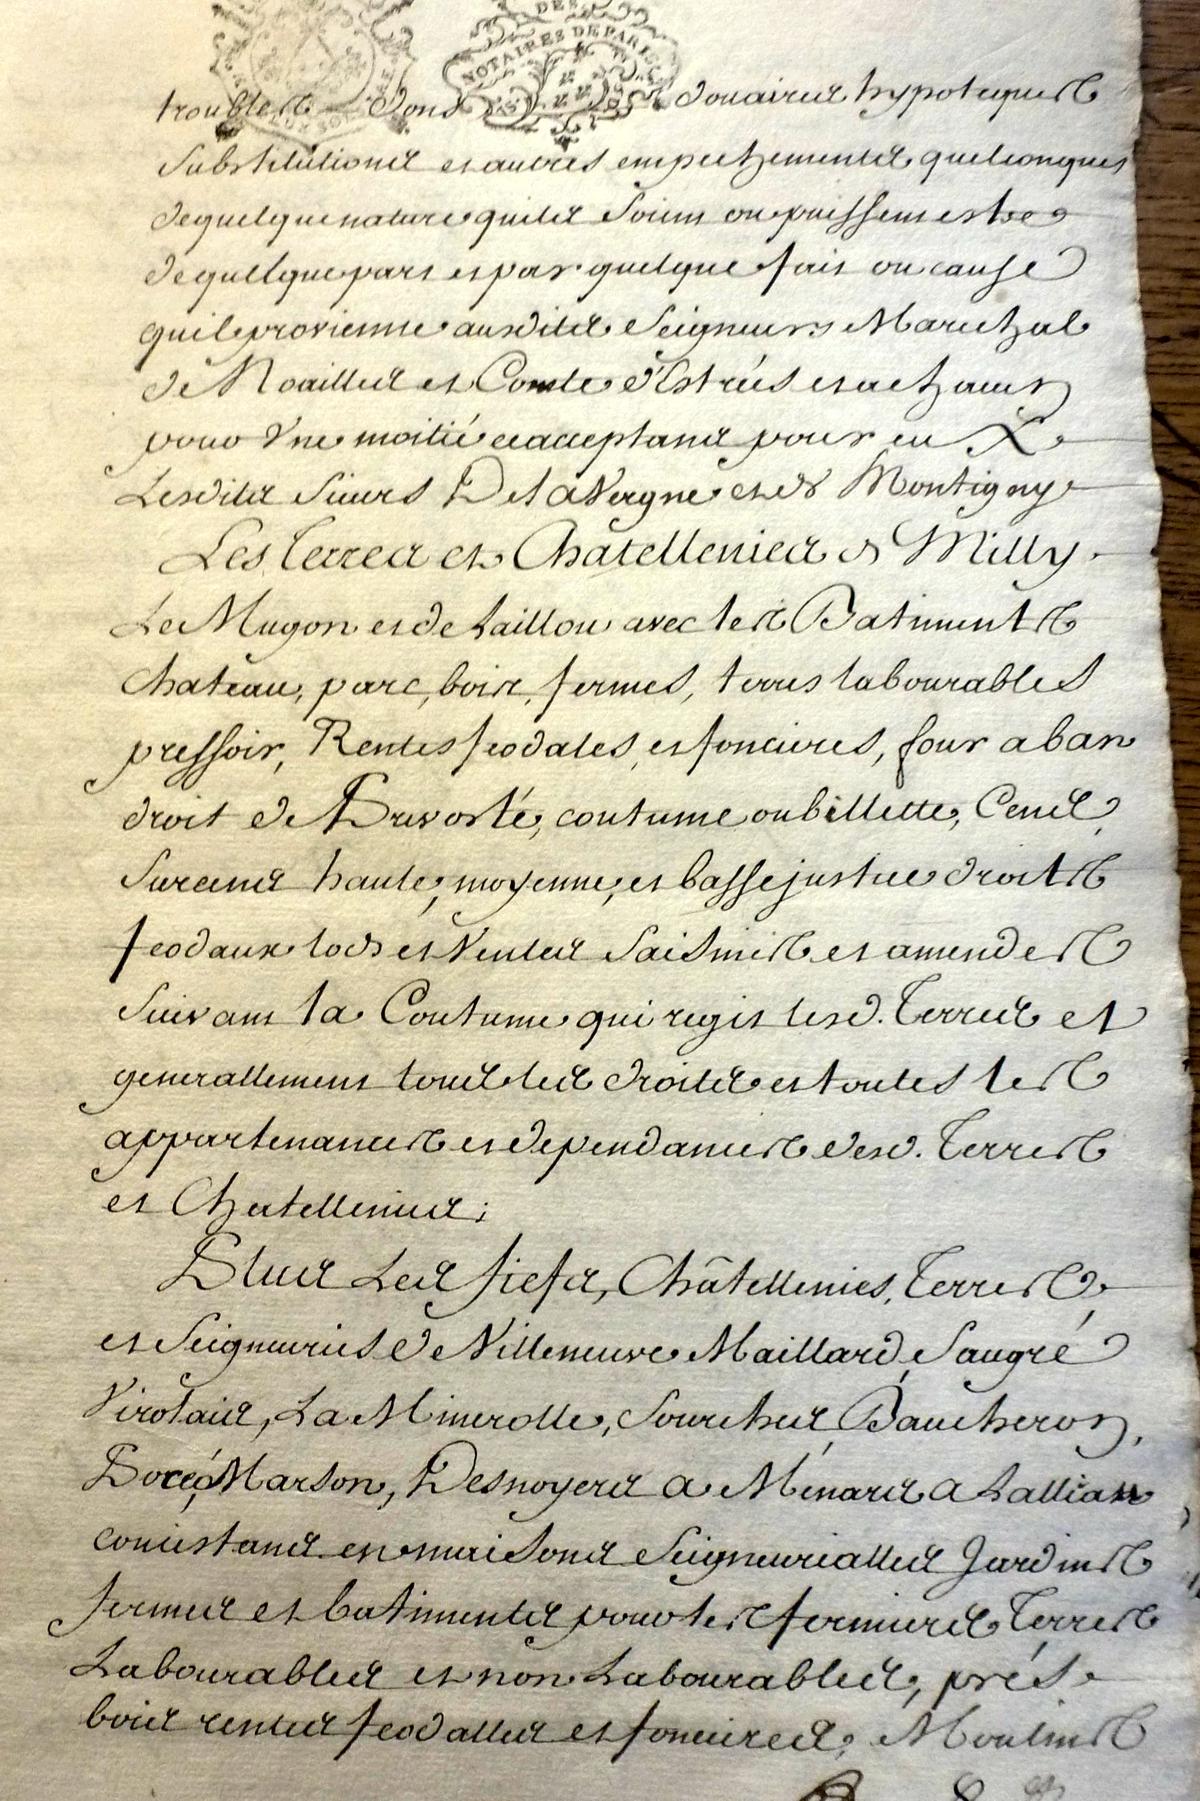 DES
NOTAIRES DE PARIS
troubles dons douaires hypoteques
Substitutions et autres empechements quelconques
de quelque nature quils soient ou puissent estre
de quelque part et par quelque fait ou cause
quil provienne ausdits Seigneurs Marechal
de Noailles et Comte d'Estrées et achateurs
pour Une moitié ce acceptans pour eux
Lesdits Sieurs Delavergne et de Montigny
Les Terres et Chatellenies de Milly
Le Mugon et de Laillou avec les Batiments
Chateau, parc, bois, fermes, terres labourables
pressoir, Rentes feodales, et foncieres, four a ban
droit de Prevosté, coutume ou billette, Cens,
Surcens haute, moyenne, et basse justice droits
feodaux lods et Ventes Saisines et amendes
Suivant la Coutume qui regit lesd. Terres et
generallement tous les droits et toutes les
appartenances et dependances desd. Terres
et Chatellenies;
Plus Les fiefs, Châtellenies, Terres,
et Seigneuries de Villeneuve Maillard, Saugré
Virolais, La Minerolle, Sourches Baucheron,
Docé, Marson, Desnoyers a Ménars a Lallian
consistans en maisons Seigneurialles Jardins
fermes et batiments pour les fermiers Terres
Labourables et non Labourables, prés
bois rentes feodalles et foncieres, Moulins